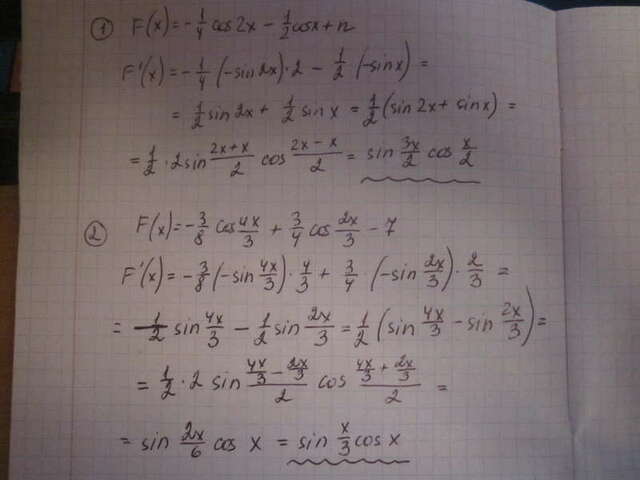 ① F(x) = -1/4 cos2x - 1/2 cosx + n
F'(x) = -1/4 (-sin2x)·2 - 1/2 (-sinx) =
= 1/2 sin2x + 1/2 sin x = 1/2 (sin2x + sinx) =
= 1/2 · 2sin (2x+x)/2 cos (2x-x)/2 = sin 3x/2 cos x/2
② F(x) = -3/8 cos 4x/3 + 3/4 cos 2x/3 - 7
F'(x) = -3/8 (-sin 4x/3) · 4/3 + 3/4 · (-sin 2x/3) · 2/3 =
= 1/2 sin 4x/3 - 1/2 sin 2x/3 = 1/2 (sin 4x/3 - sin 2x/3) =
= 1/2 · 2 sin (4x/3 - 2x/3)/2 cos (4x/3 + 2x/3)/2 =
= sin 2x/6 cos x = sin x/3 cos x